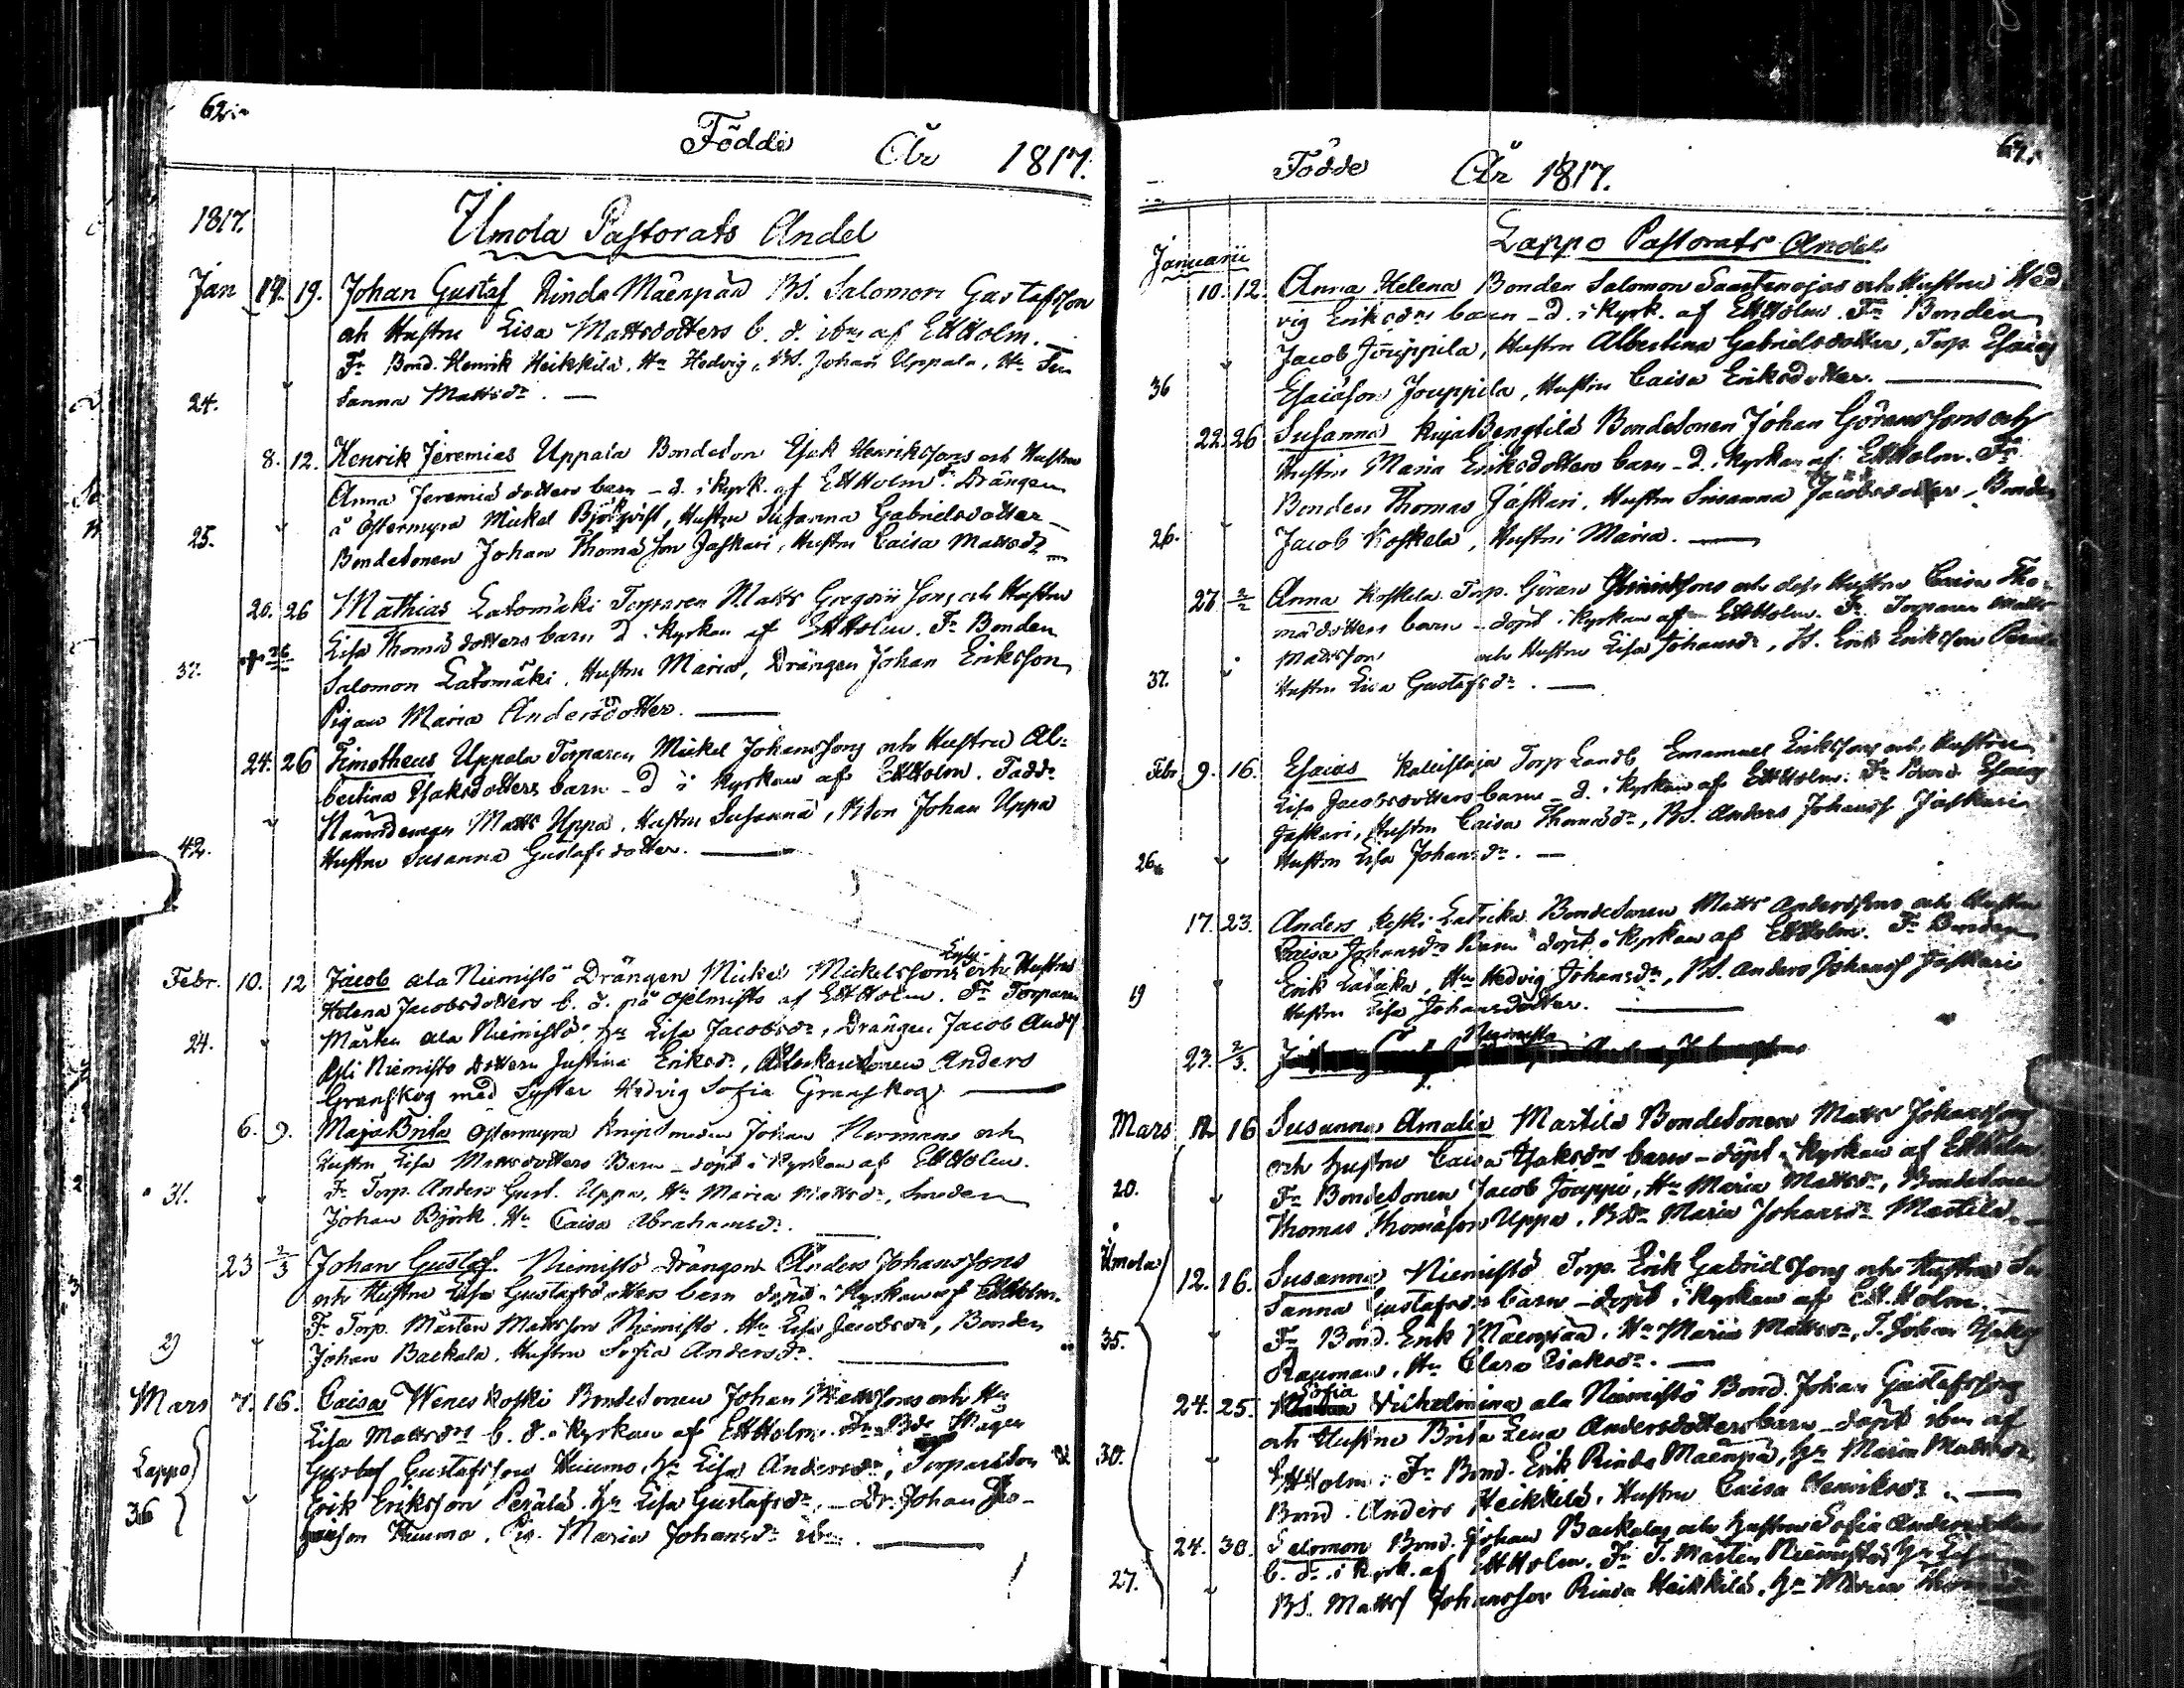 62.
Födde År 1817.
1817. Ilmola Pastorats Andel
Jan 17. 19. Johan Gustaf Rinda Mäenpää BS. Salomon Gustafsson
och Hustru Lisa Mattsdotters b. d. ibm af EHHolm.
Fr Bond. Henrik Heikkilä, Hu Hedvig, BS. Johan Uppala, Hu Su
24. sanna Mattsdr.
8. 12. Henrik Jeremias Uppala Bondeson Isak Henrikssons och Hustru
Anna Jeremiædotters barn - d. i kyrk. af EHHolm Fr Drängen
å Östermyra Mickel Björqvist, Hustru Susanna Gabrielsdotter
25. Bondesonen Johan Thomasson Jaskari, Hustru Caisa Mattsdr
20. 26 Mathias Latomäki Torparen Matts Gregorii Sons och Hustru
Lisa Thomædotters barn d. i kyrkan af EHHolm. Fr Bonden
37. Salomon Latomäki, Hustru Maria, Drängen Johan Eriksson
Pigan Maria Andersdotter.
24. 26 Timotheus Uppala Torparen Mickel Johanssons och Hustru Al-
bertina Isaksdotters barn - d i kyrkan af EHHolm. Fadd.
Nämndeman Matts Uppa, Hustru Susanna, BSon Johan Uppa
42. Hustru Susanna Gustafsdotter.
Febr. 10. 12 Jacob ala Niemistö Drängen Mickel Mickelssons och Hustru
Helena Jacobsdotters b. d. på Hjelmisto af EHHolm. Fr Torparen
24. Mårten ala Niemistö, Hu Lisa Jacobsdr, Drängen Jacob Ands
Yli Niemisto Dottern Justina Eriksdr, Anders
Granskog med Syster Hedvig Sofia Granskog
6. 9. Maja Brita Östermyra Knipsmeden Johan Normans och
Hustru Lisa Mattsdotters Barn - döpt i kyrkan af EHHolm.
31. Fr Torp. Anders Gust. Uppa, Hu Maria Mattsdr, Smeden
Johan Björk. Hu Caisa Abrahamsdr.
23 2/3 Johan Gustaf Niemistö Drängen Anders Johanssons
och Hustru Lisa Gustafsdotters barn döpt i kyrkan af EHHolm.
Fr Torp. Mårten Mattsson Niemistö, Hu Lisa Jacobsdr, Bonden
29 Johan Backala, Hustru Sofia Andersdr.
Mars 7. 16. Caisa Weneskoski Bondesonen Johan Mattssons och Hu
Lisa Mattsdrs b. d. i kyrkan af EHHolm. Fr Bde Mågen
Lappo Gustaf Gustafsson Heiumo, Hu Lisa Andersdr, Torparson
36 Erik Eriksson Perälä, Hu Lisa Gustafsdr, - Dr. Johan Jo-
hansson, Pig. Maria Johansdr ibm.
Födde År 1817.
Lappo Pastorats Andel
Januarii
10. 12. Anna Helena Bonden Salomon Saartenojas och Hustru Hed
vig Eriksdrs barn - d. i kyrk. af EHHolm. Fr Bonden
Jacob Jouppila, Hustru Albertina Gabrielsdotter, Torp. Esaias
36 Esaiasson Jouppila, Hustru Caisa Eriksdotter.
22. 26 Susanna KujaBengtilä Bondesonen Johan Göranssons och
Hustru Maria Eriksdotters barn - d. i kyrkan af EHHolm. Fr
Bonden Thomas Jaskari, Hustru Susanna Jacobsdotter, Bonden
26. Jacob Koskela, Hustru Maria.
27 2/2 Anna Koskela Torp. Göran Henrikssons och dess Hustru Caisa Tho-
mædotters barn - döpt i kyrkan af EHHolm. Fr Torparen Matts
Mattsson och Hustru Lisa Johansdr, JS. Erik Eriksson Perälä
37. Hustru Lisa Gustafsdr.
Febr 9. 16. Esaias Torp Landb Emanuel Erikssons och Hustru
Lisa Jacobsdotters barn - d. i kyrkan af EHHolm. Fr Bond Esaias
Jaskari, Hustru Caisa Thomædr, BS. Anders Johanss Jaskari
26 Hustru Lisa Johansdr.
17. 23. Anders Keski Latikka Bondesonen Matts Anderssons och Hustru
Caisa Johansdrs Barn döpt i kyrkan af EHHolm. Fr Bonden
Erik Latikka, Hu Hedvig Johansdr, BS. Anders Johanss Jaskari
19 Hustru Lisa Johansdotter.
Niemistö
23. 2/3.
Mars 12 16 Susanna Amalia Martila Bondesonen Matts Johanssons
och Hustru Caisa Isaksdrs barn - döpt i kyrkan af EHHolm
20. Fr Bondesonen Jacob Jouppi, Hu Maria Mattsdr, Bondesonen
Thomas Thomasson Uppa, BDr Maria Johansdr Martila.
Ilmola
12. 16. Susanna Niemistö Torp. Erik Gabrielssons och Hustru Su
sanna Gustafsdrs barn - döpt i kyrkan af EH.Holm.
35. Fr Bond. Erik Mäenpää, Hu Maria Mattsdr, T. Johan Isaks
Rauman, Hu Clara Isaksdr.
Sofia
24. 25. Vilhelmina ala Niemistö Bond. Johan Gustafssons
och Hustru Brita Lena Andersdotters barn - döpt ibm af
30. EHHolm. Fr Bond. Erik Rinda Mäenpä, Hu Maria Mattsdr
Bond. Anders Heikkilä, Hustru Caisa Henriksdr.
24. 30. Salomon Bond. Johan Backalas och Hustru Sofia Andersdotters
b. d. i kyrk. af EHHolm. Fr T. Mårten Niemistö, Hu Lisa
27. BS. Matts Johansson Rinda Heikkilä, Hu Maria